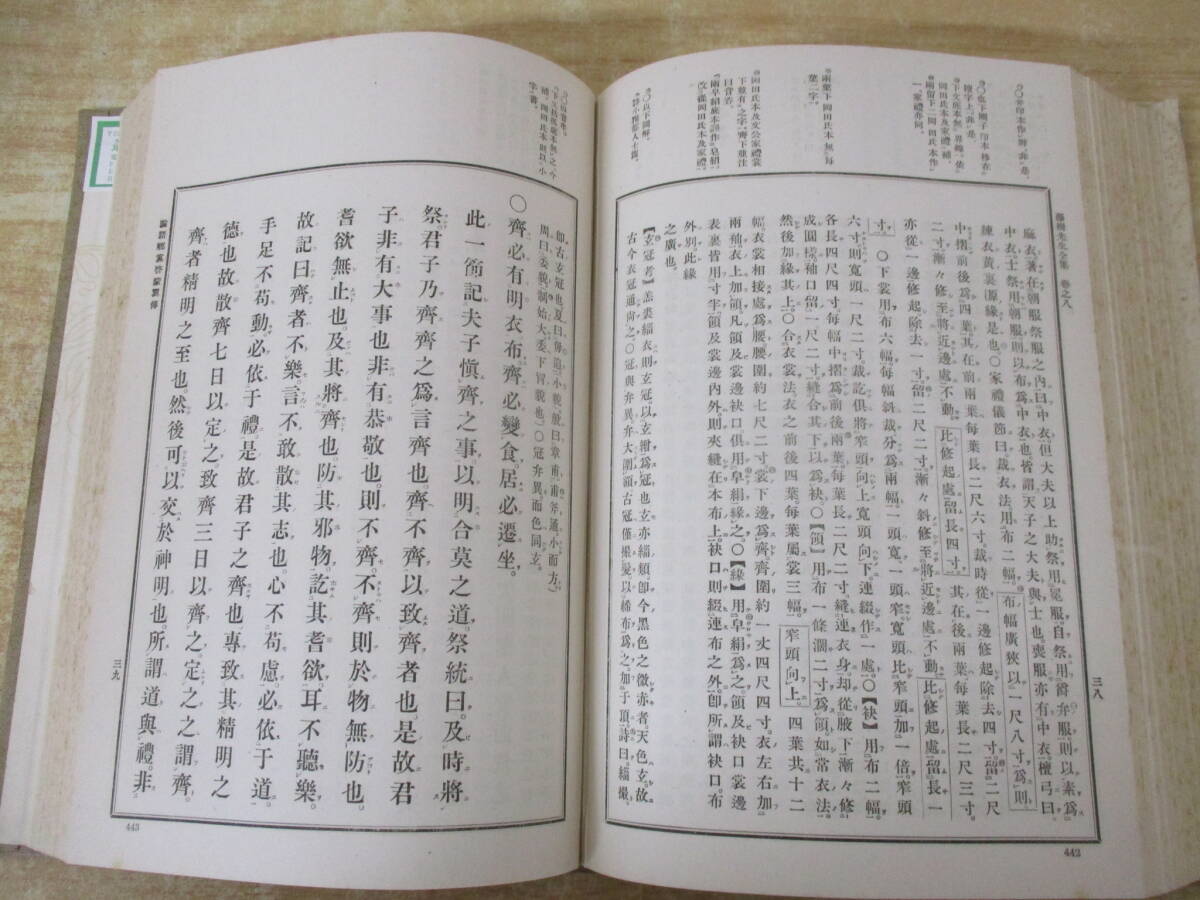 藤樹先生全集 卷之八
三八
麻衣著在朝服祭服之內曰中衣但大夫以上助祭用冕服自祭用爵弁服則以素爲
中衣士祭用朝服則以布爲中衣也皆謂天子之大夫與士也喪服亦有中衣檀弓曰
練衣黃裏縓緣是也〇家禮儀節曰裁衣法用布二幅布幅廣狹以一尺八寸爲則
中摺前後爲四葉其在前兩葉每葉長二尺六寸裁時從一邊修起除去四寸留二尺
二寸漸々修至將近邊處不動比修起處留長四寸其在後兩葉每葉長二尺三寸
亦從一邊修起除去一寸留二尺二寸漸々斜修至將近邊處不動比修起處留長一
寸〇下裳用布六幅每幅斜裁分爲兩幅一頭寬一頭窄寬頭比窄頭加一倍窄頭
六寸則寬頭一尺二寸裁訖俱將窄頭向上寬頭向下連綴作一處〇【袂】用布二幅
各長四尺四寸每幅中摺爲前後兩葉每葉長二尺二寸縫連衣身却從腋下漸々修
成圓樣袖口留一尺二寸縫合其下以爲袂〇【領】用布一條濶二寸爲領如常衣法
然後加緣其上〇合衣裳法衣之前後四葉每葉屬裳三幅窄頭向上四葉共十二
幅衣裳相接處爲腰腰圍約七尺二寸裳下邊爲齊齊圍約一丈四尺四寸衣左右加
兩袖衣上加領凡領及裳邊袂口俱用皁絹緣之〇【緣】用皁絹爲之領及袂口裳邊
表裏皆用寸半領及裳邊內外則夾縫在本布上袂口則綴連布之外卽所謂袂口布
外別此緣
之廣也
【玄冠考】羔裘緇衣則玄冠以玄紺爲冠也玄亦緇類卽今黑色之微赤者天色玄故
古今衣冠通尙之〇冠與弁異弁大闊頭古冠僅撮髮以緇布爲之加于頂詩曰緇撮
442
卽古玄冠也夏曰毋追小貌殷曰章甫甫斧通小而方
周曰委貌制始大委下冒貌也〇冠弁異而色同玄
〇齊必有明衣布齊必變食居必遷坐
此一節記夫子愼齊之事以明合莫之道祭統曰及時將
祭君子乃齊齊之爲言齊也齊不齊以致齊者也是故君
子非有大事也非有恭敬也則不齊不齊則於物無防也
耆欲無止也及其將齊也防其邪物訖其耆欲耳不聽樂
故記曰齊者不樂言不敢散其志也心不苟慮必依于道
手足不苟動必依于禮是故君子之齊也專致其精明之
德也故散齊七日以定之致齊三日以齊之定之之謂齊
齊者精明之至也然後可以交於神明也所謂道與禮非
論語鄕黨啓蒙翼傳
三九
443